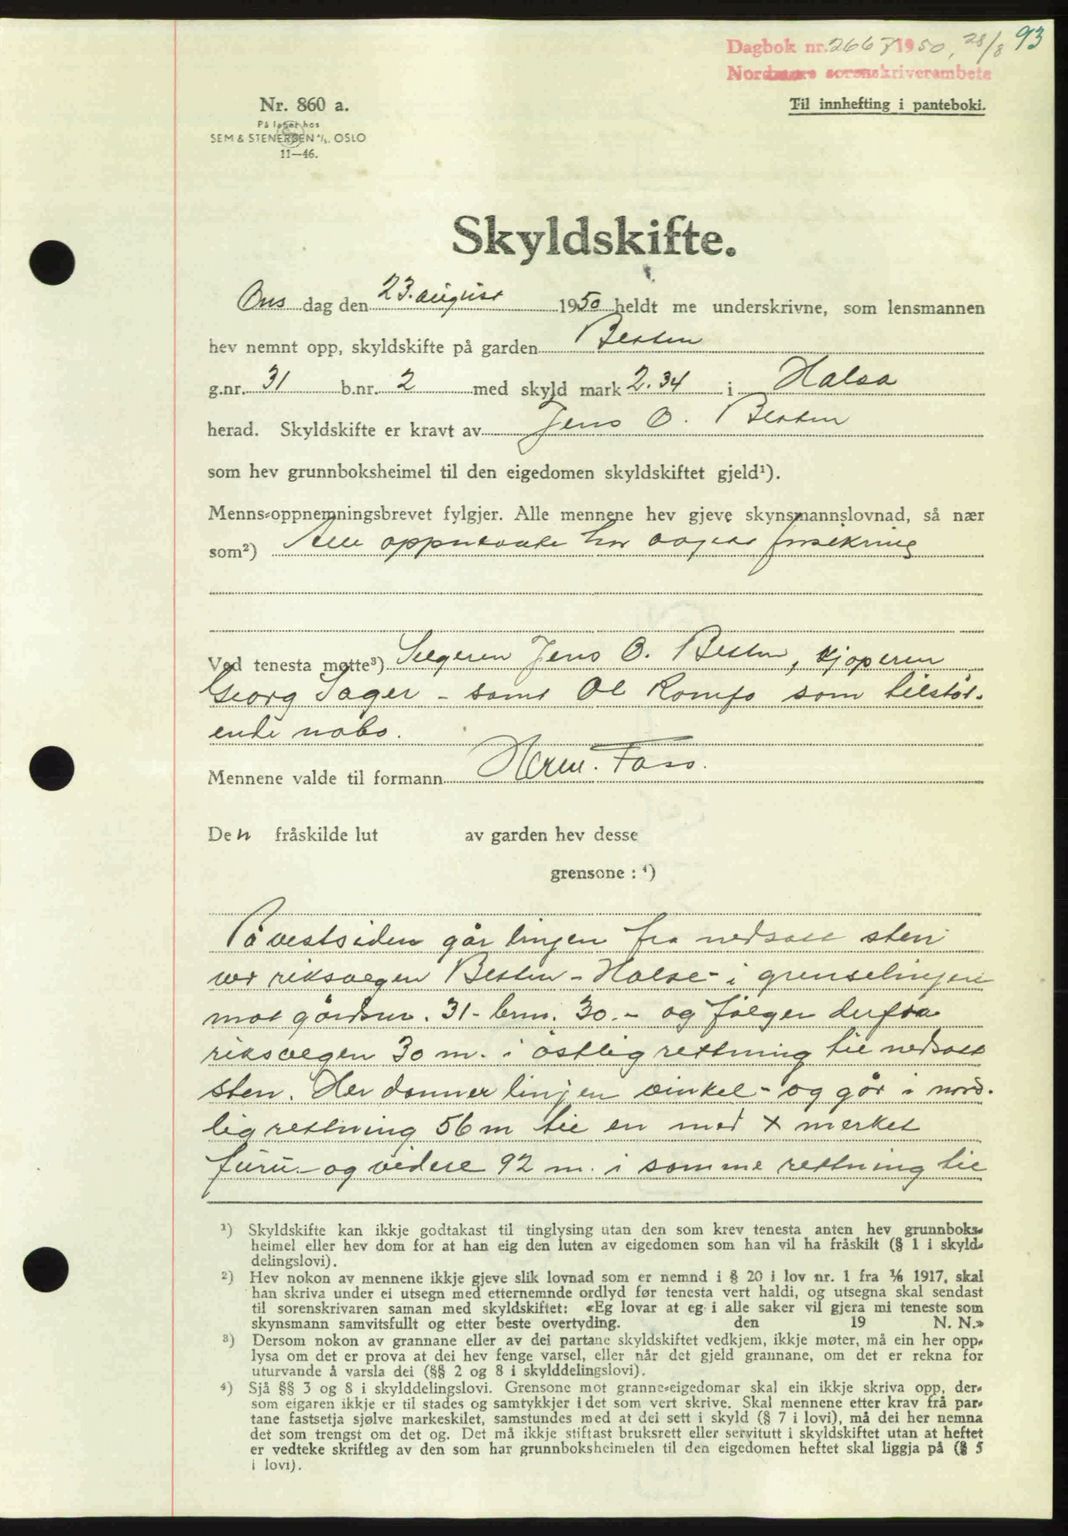 Dagbok nr. 2667 1950, 28/8 93
Nordmøre sorenskriverambete
Nr. 860 a.
Til innhefting i panteboki.
På lager hos
SEM & STENERSEN A/S. OSLO
11—46.
Skyldskifte.
Ons dag den 23. august 1950 heldt me underskrivne, som lensmannen
hev nemnt opp, skyldskifte på garden Besten
g.nr. 31 b.nr. 2 med skyld mark 2.34 i Halsa
herad. Skyldskifte er kravt av Jens O. Besten
som hev grunnboksheimel til den eigedomen skyldskiftet gjeld¹).
Menns-oppnemningsbrevet fylgjer. Alle mennene hev gjeve skynsmannslovnad, så nær
som²) Alle oppnevnte har avgitt forsikring
Ved tenesta møtte³) Selgeren Jens O. Besten, kjøperen
Georg Sager - samt Ol Romfo som tilstøt-
ende nabo.
Mennene valde til formann Herm. Foss.
Den fråskilde lut av garden hev desse
grensone : ⁴)
På vestsiden går linjen fra nedsatt sten
ved riksvegen Besten - Halsa - i grenselinjen
mot gårdsnr. 31 - brnr. 30. - og følger derfra
riksvegen 30 m. i østlig rettning til nedsatt
sten. Her danner linjen vinkel - og går i nord-
lig rettning 56 m til en med x merket
furu - og videre 92 m. i samme rettning til
¹) Skyldskifte kan ikkje godtakast til tinglysing utan den som krev tenesta anten hev grunnboks-
heimel eller hev dom for at han eig den luten av eigedomen som han vil ha fråskilt (§ 1 i skyld-
delingslovi).
²) Hev nokon av mennene ikkje gjeve slik lovnad som er nemnd i § 20 i lov nr. 1 fra 1/6 1917, skal
han skriva under ei utsegn med etternemnde ordlyd før tenesta vert haldi, og utsegna skal sendast
til sorenskrivaren saman med skyldskiftet: «Eg lovar at eg i alle saker vil gjera mi teneste som
skynsmann samvitsfullt og etter beste overtyding. den 19 N. N.»
³) Dersom nokon av grannane eller av dei partane skyldskiftet vedkjem, ikkje møter, må ein her opp-
lysa om det er prova at dei hev fenge varsel, eller når det gjeld grannane, om det er rekna for
uturvande å varsla dei (§§ 2 og 8 i skylddelingslovi).
⁴) Sjå §§ 3 og 8 i skylddelingslovi. Grensone mot granne-eigedomar skal ein ikkje skriva opp, der-
som eigaren ikkje er til stades og samtykkjer i det som vert skrive. Skal mennene etter krav frå par-
tane fastsetja sjølve markeskilet, samstundes med at dei sett i skyld (§ 7 i lovi), må dei her nemna
det som trengst om det og. Det må ikkje stiftast bruksrett eller servitutt i skyldskiftet utan at heftet
er vedteke skriftleg av den som har grunnboksheimelen til den eigedomen heftet skal liggja på (§ 5
i lovi).